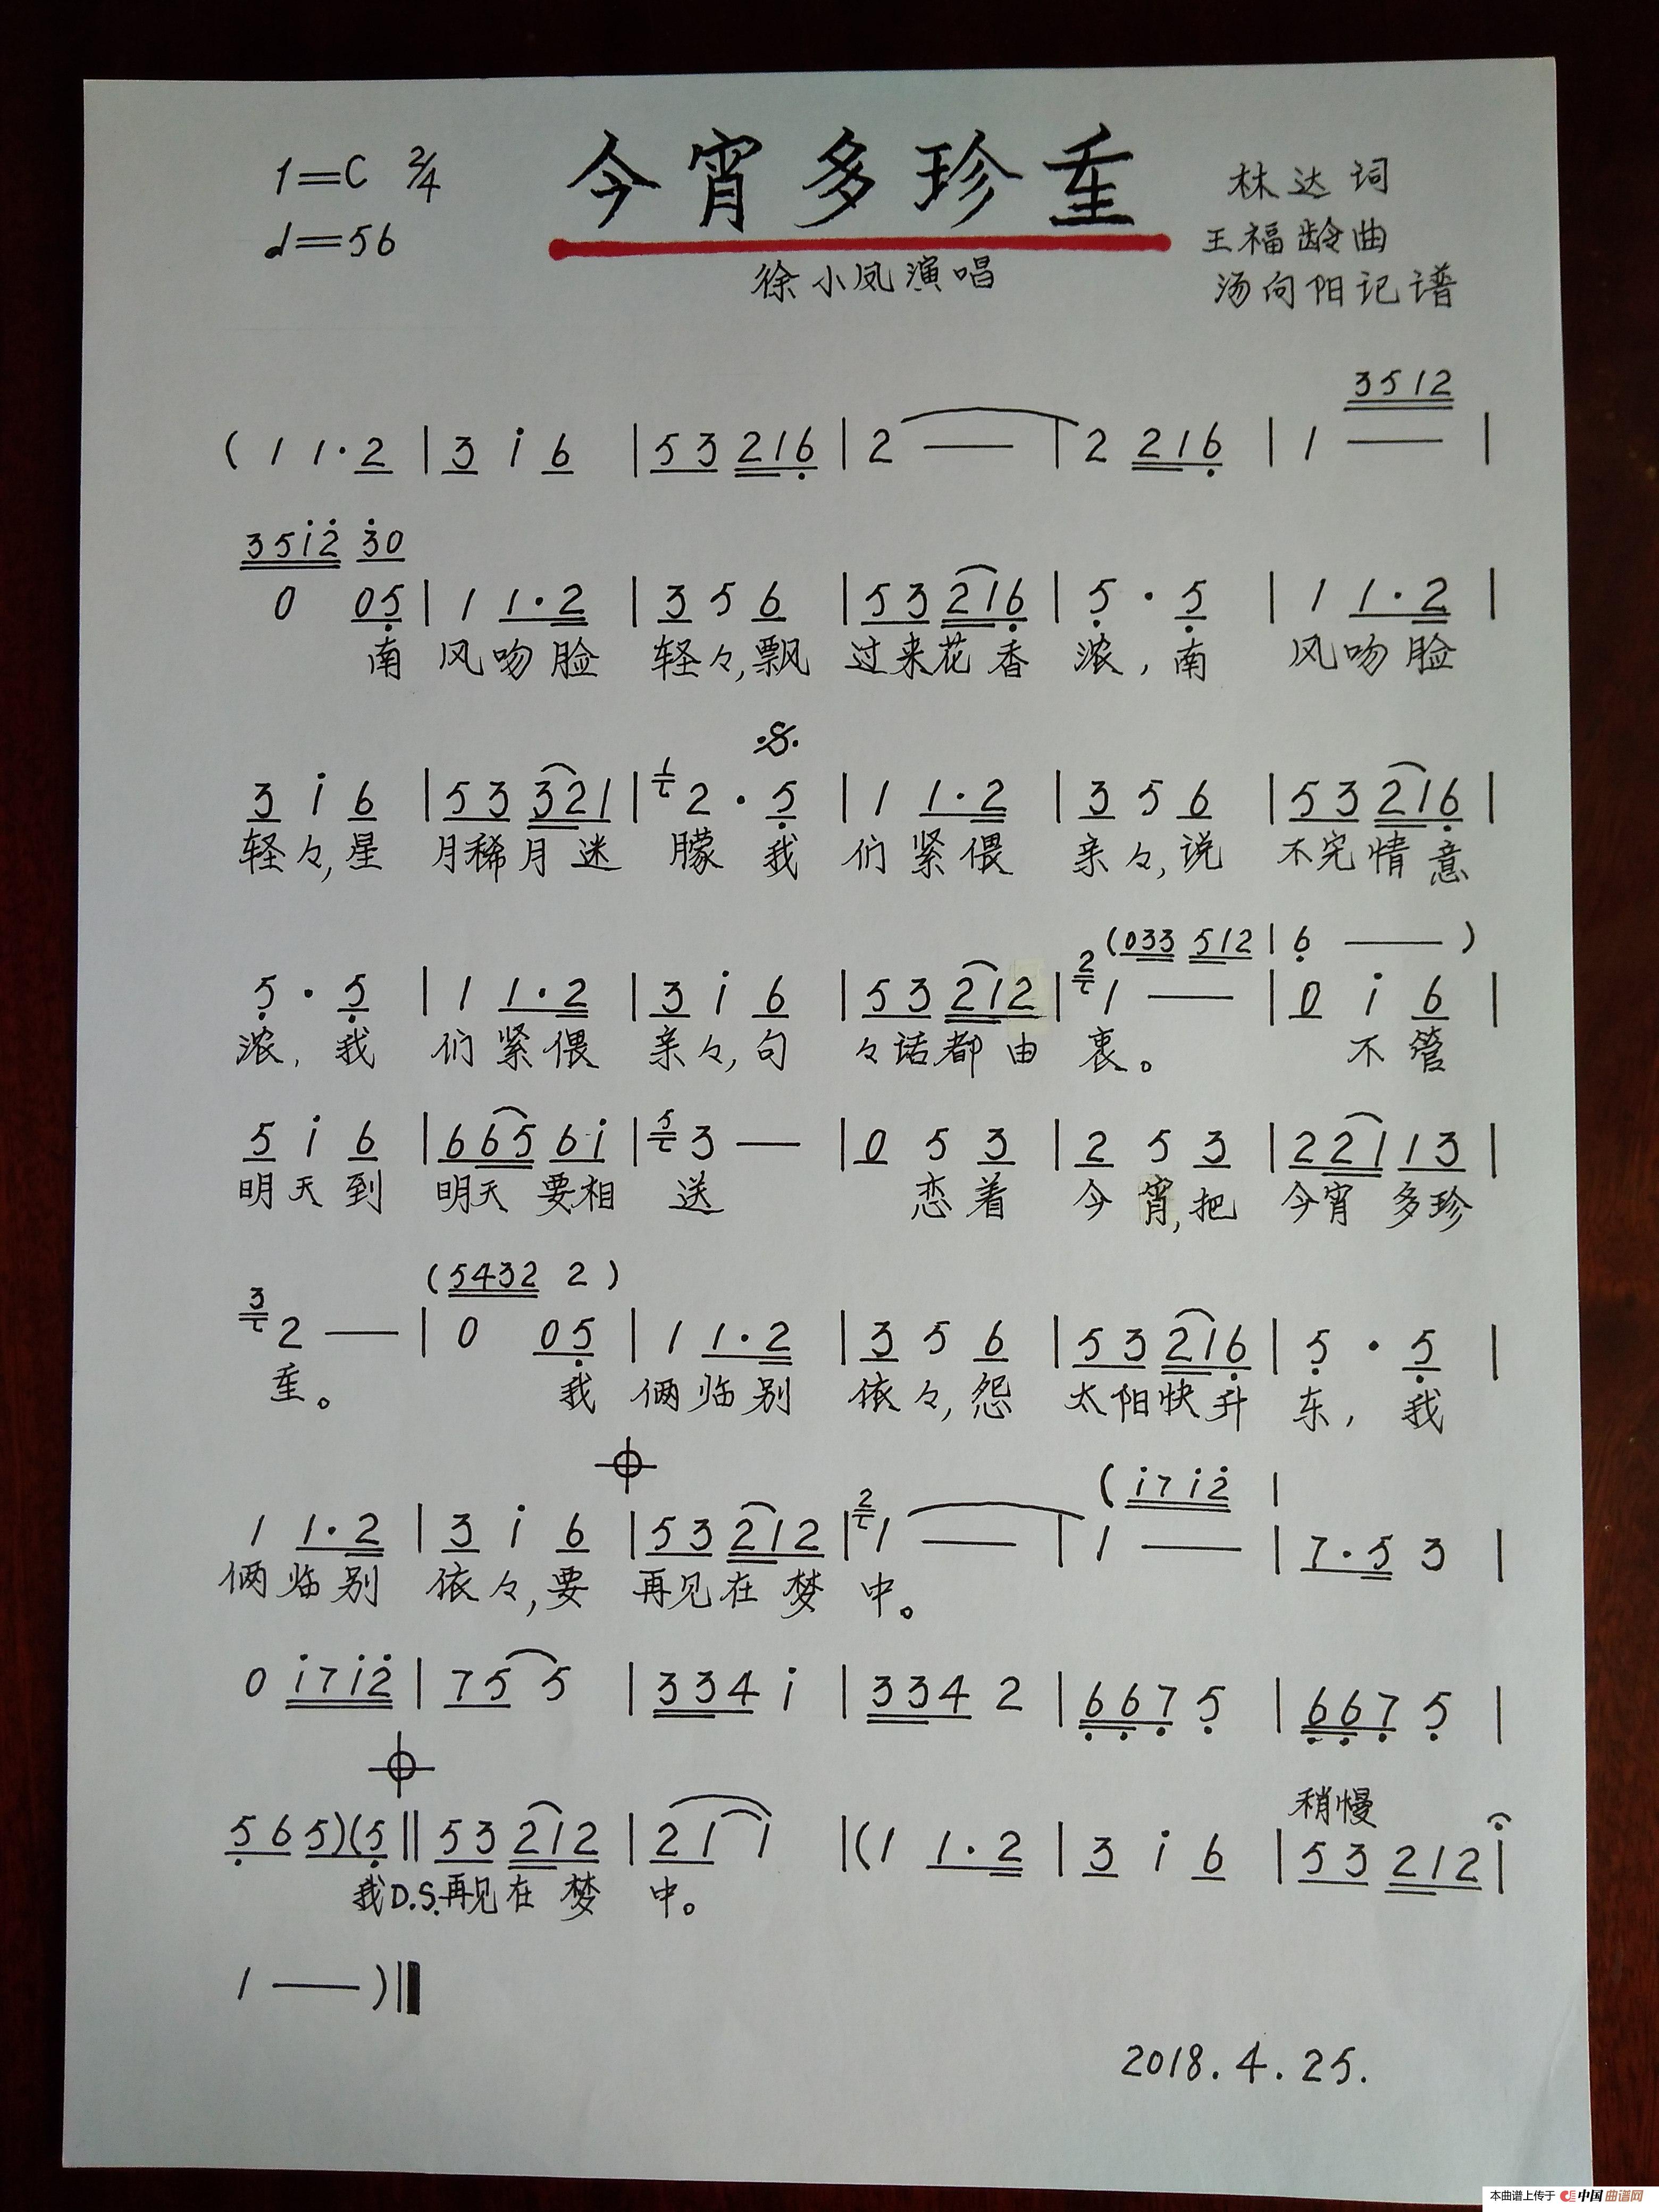 1=C 2/4
今宵多珍重
♩=56
徐小凤演唱
林达词
王福龄曲
汤向阳记谱
3512
( 1 1·2 | 3 i 6 | 53 216 | 2 — | 2 216 | 1 — |
35i2 30
0 05 | 1 1·2 | 3 5 6 | 53 216 | 5 · 5 | 1 1·2 |
南 风吻脸 轻々,飘 过来花香 浓,南 风吻脸
3 i 6 | 53 321 | 1 2 · 5 | 1 1·2 | 3 5 6 | 53 216 |
轻々,星 月稀月迷 朦 我 们紧偎 亲々,说 不完情意
(033 512 | 6 — )
5 · 5 | 1 1·2 | 3 i 6 | 53 212 | 2 1 — | 0 i 6 |
浓,我 们紧偎 亲々,句 々话都由 衷。 不管
5 i 6 | 665 6i | 5 3 — | 0 5 3 | 2 5 3 | 221 13 |
明天到 明天 要相 送 恋着 今宵,把 今宵 多珍
(5432 2 )
3 2 — | 0 05 | 1 1·2 | 3 5 6 | 53 216 | 5 · 5 |
重。 我 俩临别 依々,怨 太阳快升 东,我
(i7i2 |
1 1·2 | 3 i 6 | 53 212 | 2 1 — | 1 — | 7·5 3 |
俩临别 依々,要 再见在梦 中。
0 i7i2 | 75 5 | 334 i | 334 2 | 667 5 | 667 5 |
稍慢
56 5)(5 || 53 212 | 21 1 |(1 1·2 | 3 i 6 | 53 212 |
我D.S.再见在梦 中。
1 — )||
2018.4.25.
本曲谱上传于 中国曲谱网